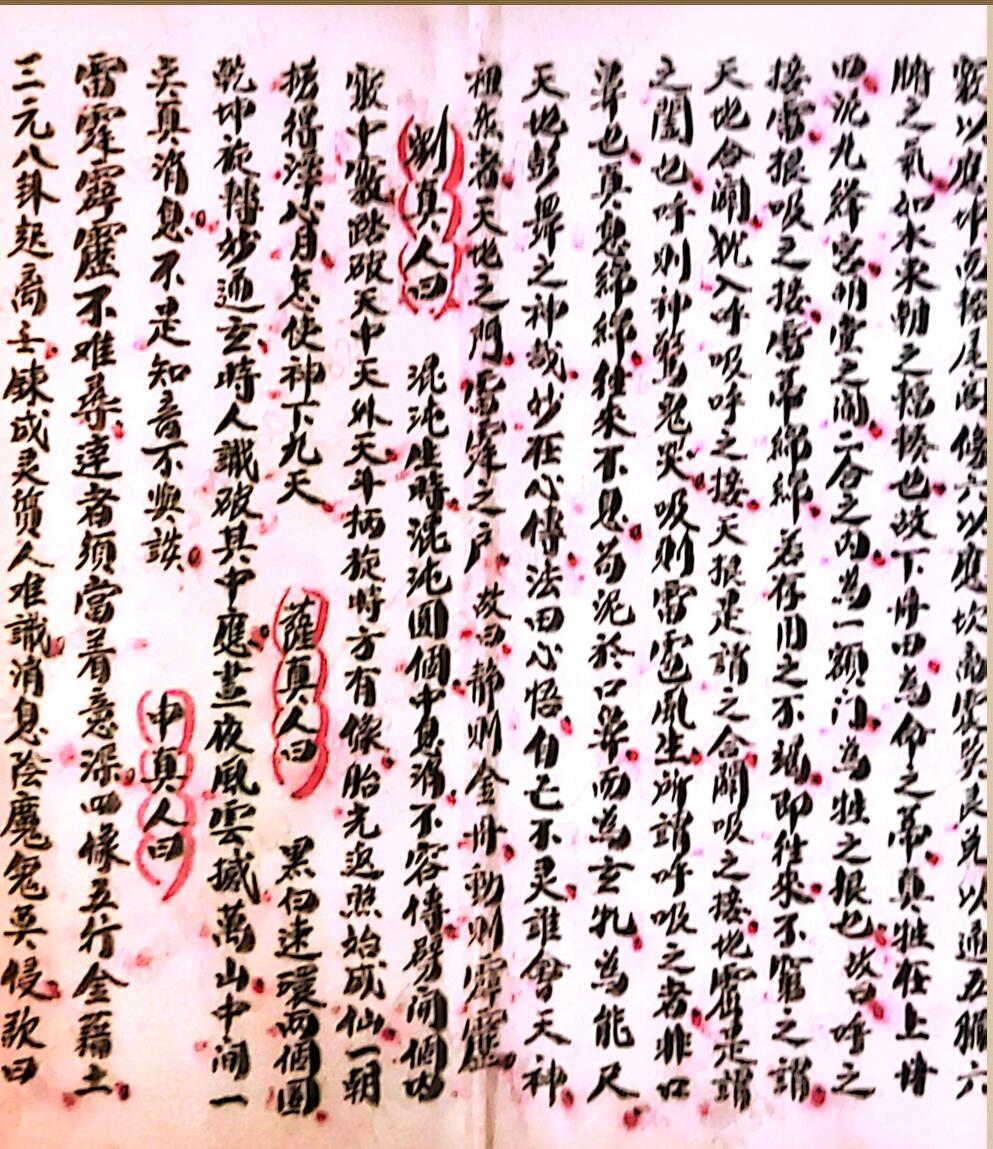 竅以應坤而接尾閭傍六以應坎離震巽艮兌以通五臟六
腑之氣如水來朝之樞機也故下丹田為命之蒂真性在上丹
田泥九絳宮明堂之間二合之內為一額门為性之根也故曰呼之
接雷根吸之接雷蒂綿綿若存用之不竭即往來不窮之謂
天地合闢犹入呼吸呼之接天根是謂之合闢吸之接地雷是謂
之闔也呼則神驚鬼哭吸則雷雹風生所謂呼吸之者非口
鼻也真息綿綿往來不息苟泥於口鼻而為玄牝為能尺
天地彭舞之神哉妙在心傳法田心悟自亡不灵誰會天神
祖炁者天地之門雷霆之户故曰静則金丹動則霹靂
劉真人曰 混沌生時混沌圓個中息消不容傳劈開個內
竅中竅踏破天中天外天斗柄旋時方有像胎光返照始成仙一朝
搭得淨心月怎使神下九天 薩真人曰 黑白速環兩個圓
乾坤旋轉妙通玄時人識破其中應晝夜風雲撼萬山中间一
炁真消息不是知音不與談 申真人曰
雷霆霹靂不难尋達者須當着意深四像五行金藉土
三元八卦起离壬鍊成灵質人难識消息陰魔鬼莫侵歌曰